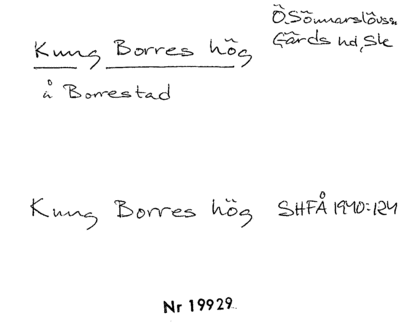 Kung Borres hög
Ö. Sönnarslövs sn
Gärds hd, Sk
å Borrestad
Kung Borres hög SHFÅ 1940:124
Nr 19929